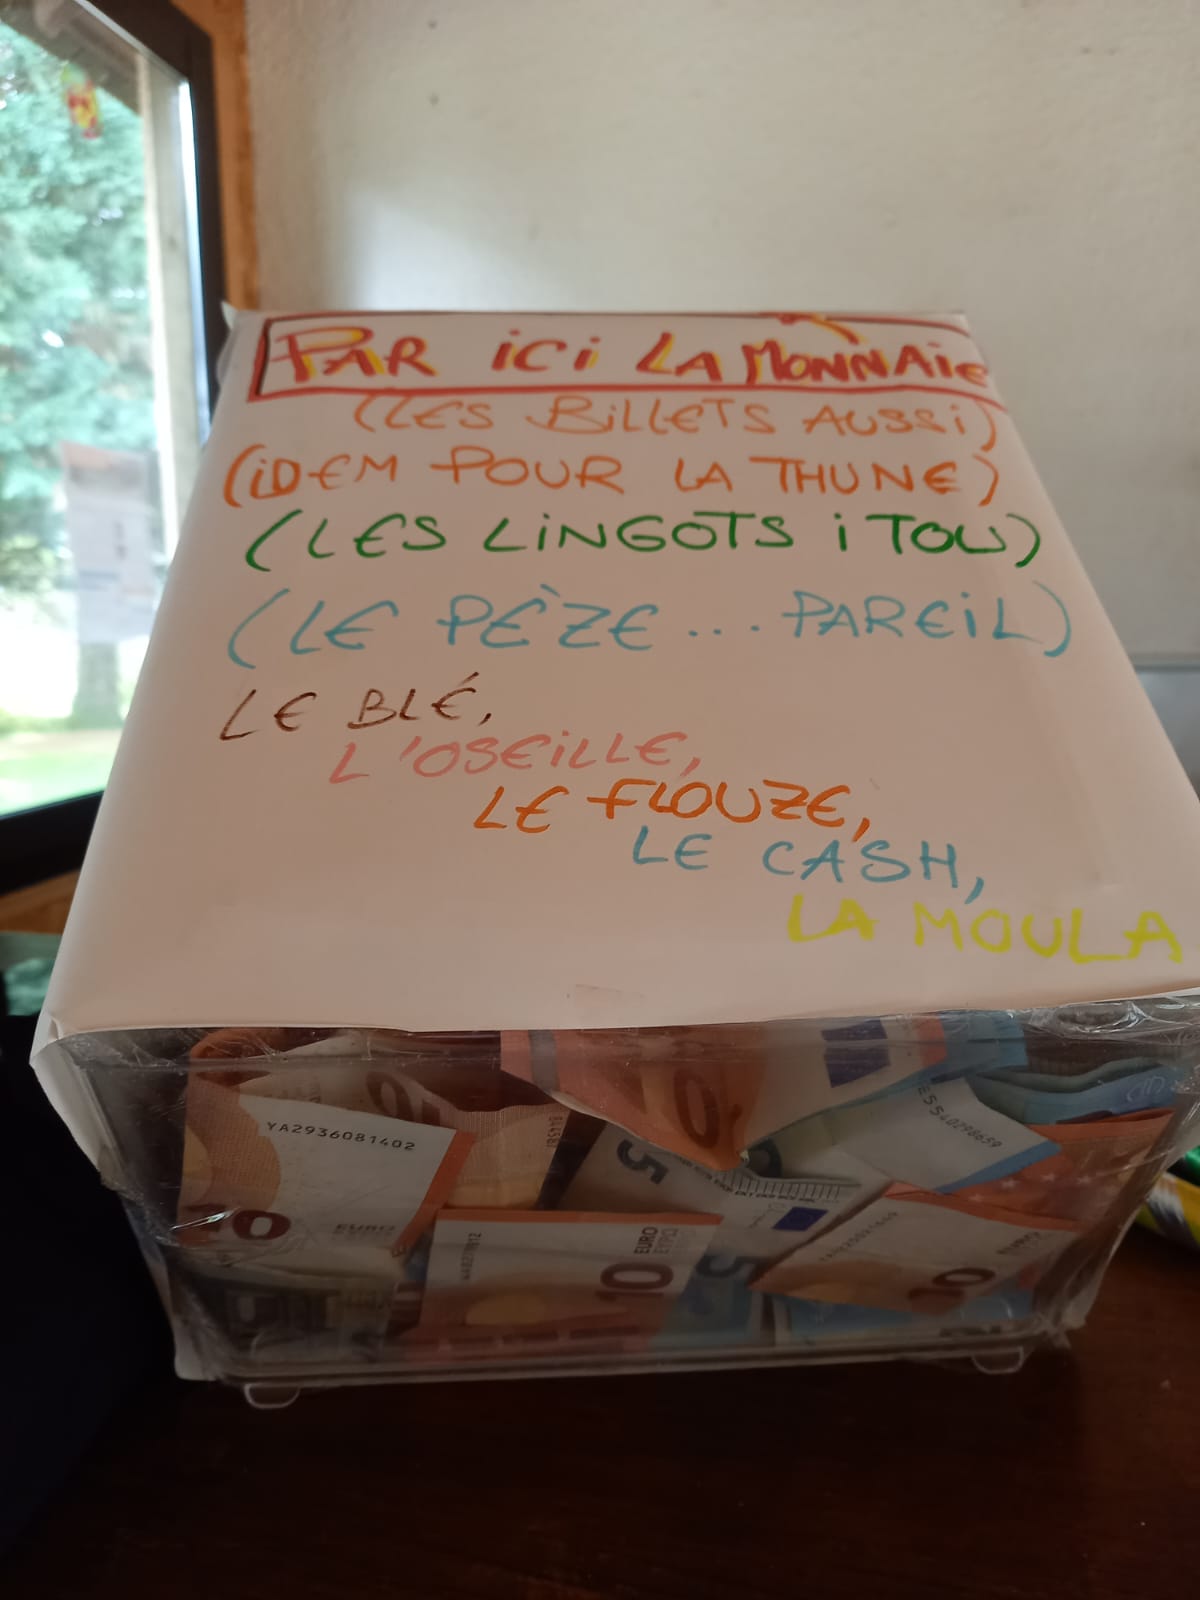 PAR ICI LA MONNAIE
(LES BILLETS AUSSI)
(IDEM POUR LA THUNE)
(LES LINGOTS I TOU)
(LE PÈZE... PAREIL)
LE BLÉ,
L'OSEILLE,
LE FLOUZE,
LE CASH,
LA MOULA
YA2936081402
10
EURO
5
10
EURO
ΕΥΡΩ
5
10